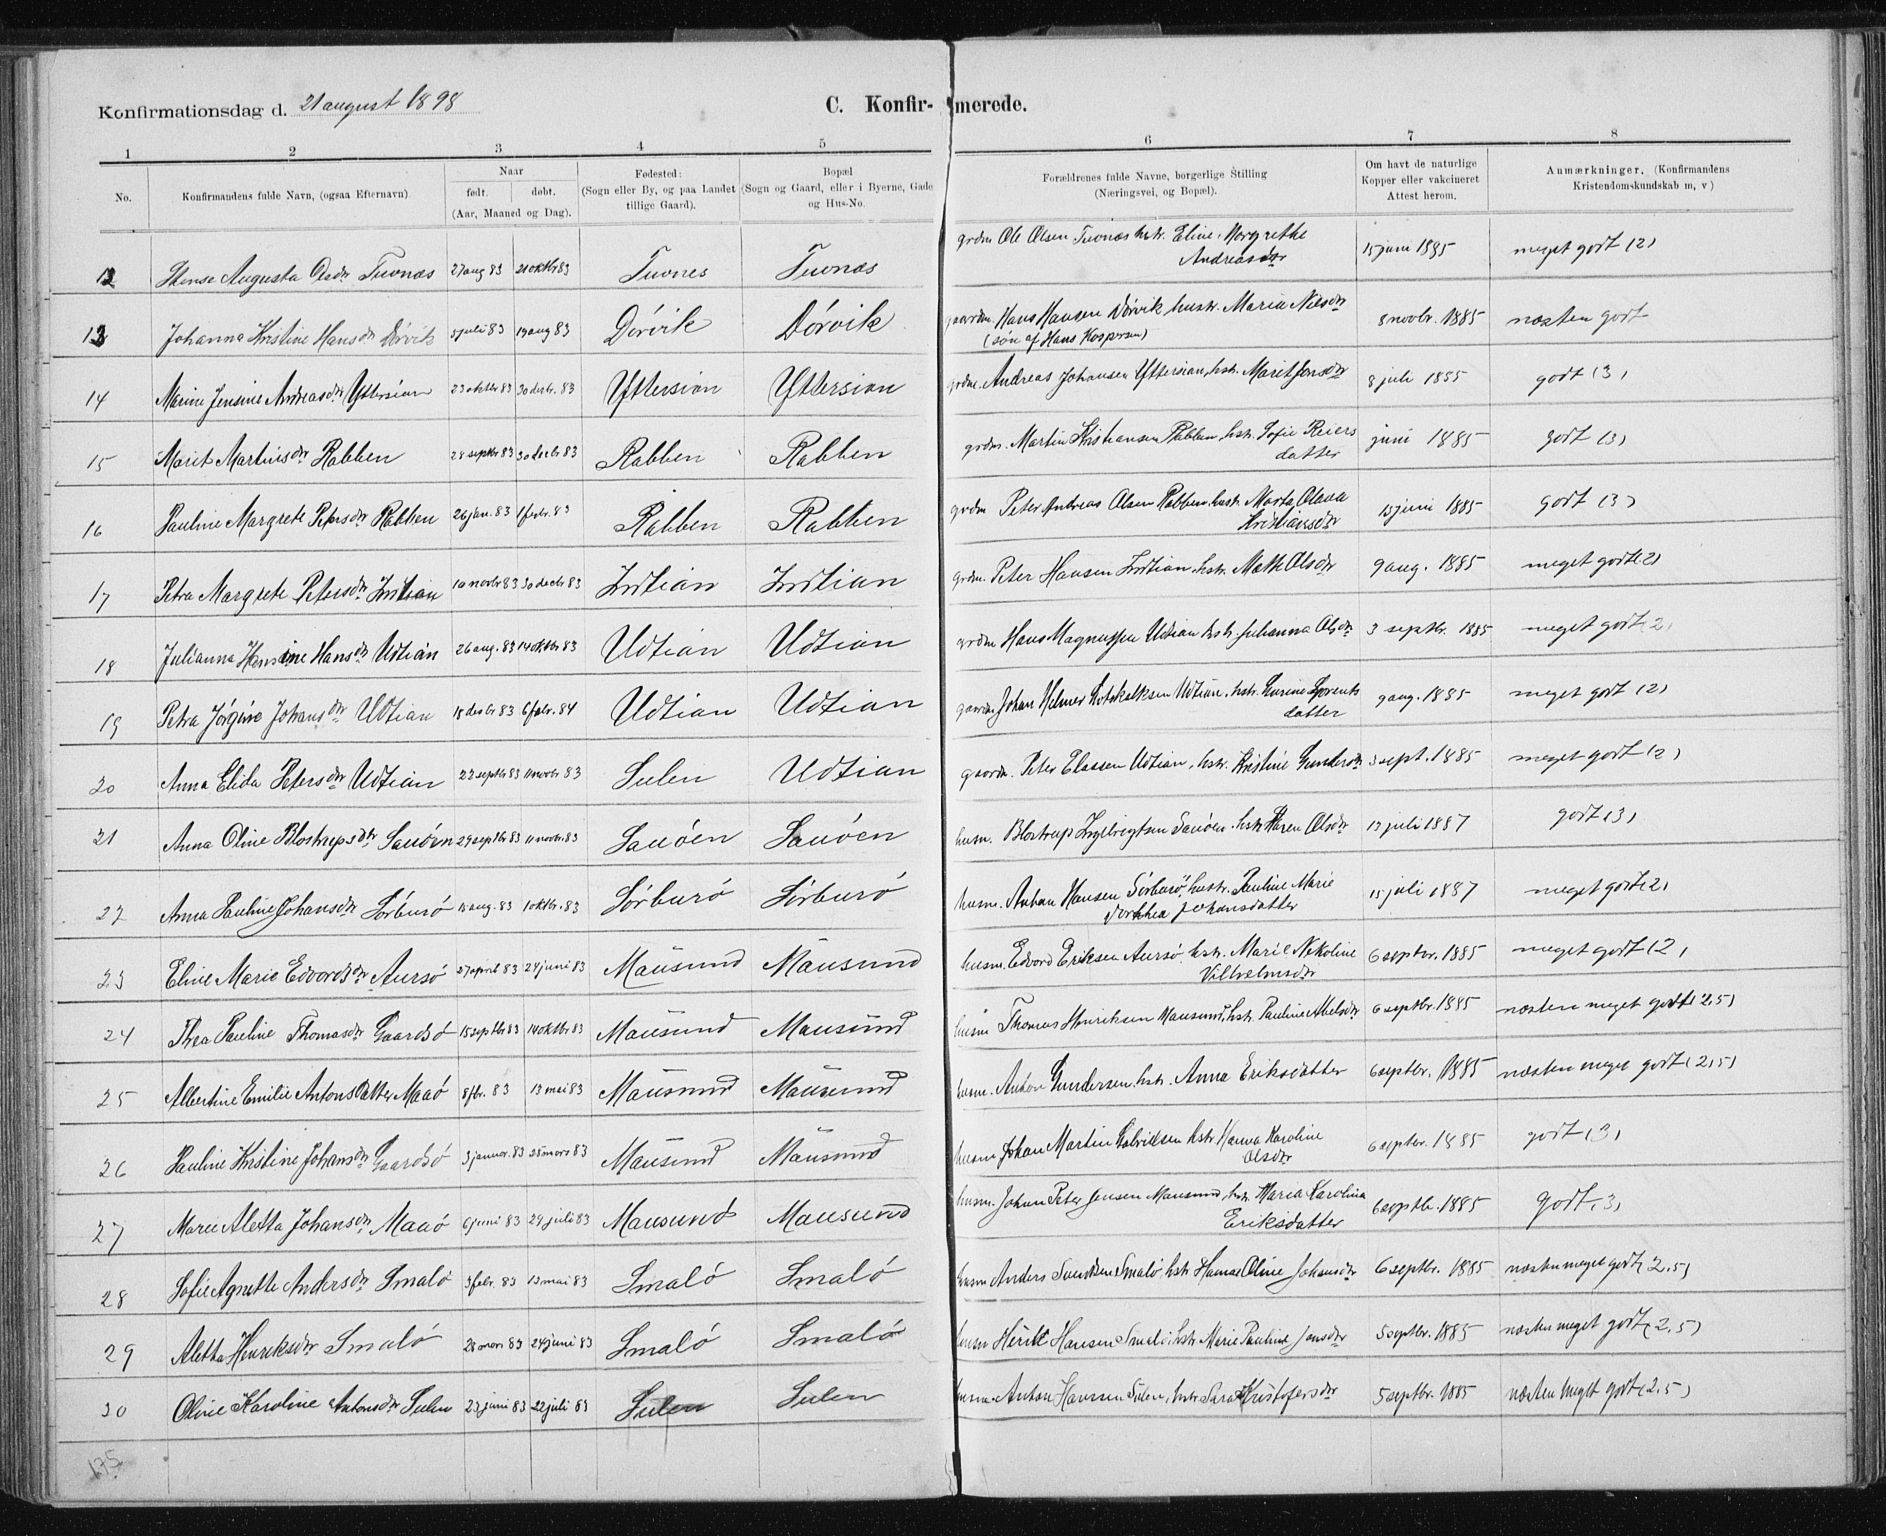 Konfirmationsdag d. 21 august 1898
C. Konfir- merede.
1 2 3 4 5 6 7 8
No. Konfirmandens fulde Navn, (ogsaa Efternavn) Naar født. døbt. (Aar, Maaned og Dag). Fødested: (Sogn eller By, og paa Landet tillige Gaard). Bopæl (Sogn og Gaard, eller i Byerne, Gade og Hus-No. Forældrenes fulde Navne, borgerlige Stilling (Næringsvei, og Bopæl). Om havt de naturlige Kopper eller vakcineret Attest herom. Anmærkninger. (Konfirmandens Kristendomskundskab m, v)
12 Augusta Olsdr Tuvnæs 27 aug 83 21 oktbr 83 Tuvnes Tuvnæs grdm Ole Olsen Tuvnæs hstr. Eline Margrethe 15 juni 1885 meget godt (2)
Andreasdr
13 Johanna Kristine Hansdr Dörvik 5 juli 83 19 aug 83 Dörvik Dörvik gaardm. Hans Hansen Dörvik hustr. Maria Nilsdr 8 novbr. 1885 næsten godt
(sön af Hans Kaspersen)
14 Marine Jensine Andreasdr Yttersian 23 oktbr 83 30 decbr. 83 Yttersian Yttersian grdm. Andreas Johansen Yttersian, hstr. Marit Jonsdr 8 juli 1885 godt (3)
15 Marit Martinsdr Rabben 28 septbr 83 30 decbr 83 Rabben Rabben grdm. Martin Kristiansen Rabben, hstr. Sofie Reiers juni 1885 godt (3)
datter
16 Pauline Margrete Petersdr Rabben 26 jan. 83 1 febr. 83 Rabben Rabben grdm Peter Andreas Olsen Rabben, hustr. Marta Olava 15 juni 1885 godt (3)
Kristiansdr
17 Petra Margrete Petersdr Indtian 10 novbr 83 30 decbr 83 Indtian Indtian grdm. Peter Hansen Indtian, hstr. Mette Olsdr 9 aug. 1885 meget godt (2)
18 Julianna Hansine Hansdr Udtian 26 aug. 83 14 oktbr 83 Udtian Udtian grdm Hans Magnussen Udtian hstr. Julianna Olsdr 3 septbr. 1885 meget godt (2)
19 Petra Jörgine Johansdr Udtian 18 desbr 83 6 febr. 84 Udtian Udtian Johan Hilmer Udtian, hstr. Lorents 9 aug. 1885 meget godt (2)
datter
20 Anna Elida Petersdr Udtian 22 septbr 83 11 novbr 83 Sulen Udtian gaardm. Peter Elassen Udtian, hstr. Kristine Gundersdr 3 sept. 1885 meget godt (2)
21 Anna Oline Blostrupsdtr Sauöen 29 septbr 83 11 novbr. 83 Sauöen Sauöen husm. Blostrup Ingebrigtsen Sauöen, hstr. Karen Olsdr 13 juli 1887 godt (3)
22 Anna Pauline Johansdr Sörburö 18 aug. 83 1 oktbr. 83 Sörburö Sörburö husm. Hansen Sörburö hustr. Pauline Marie 15 juli 1887 meget godt (2)
Dorthea Johansdatter
23 Eline Marie Edvardsdr Aursö 27 april 83 24 juni 83 Mausund Mausund husm. Edvard Eriksen Aursö hstr. Marie Nikoline 6 septbr. 1885 meget godt (2)
Vilhelmsdr
24 Thea Pauline Thomasdr Gaardsö 15 septbr 83 14 oktbr 83 Mausund Mausund husm Thomas Henriksen Mausund, hstr. Pauline Abelsdr 6 septbr. 1885 næsten meget godt (2,5)
25 Albertine Emilie Antonsdatter Maaö 8 fbr. 83 13 mei 83 Mausund Mausund husm. Anton Gundersen, hstr. Anna Eriksdatter 6 septbr. 1885 næsten meget godt (2,5)
26 Pauline Kristine Johansdr Gaardsö 3 januar. 83 25 mars 83 Mausund Mausund husm Johan Martin Gabrielsen hstr. Hanna Karoline 6 septbr. 1885 godt (3)
Olsdr
27 Marie Aletta Johansdr Maaö 6 juni 83 29 juli 83 Mausund Mausund husm. Johan Peter Jensen Mausund, hstr. Maria Karolina 6 septbr. 1885 godt (3)
Eriksdatter
28 Sofie Agnette Andersdr Smalö 3 febr. 83 13 mai 83 Smalö Smalö husm Anders Svendsen Smalö, hstr. Hanna Oline Johansdr 6 septbr. 1885 næsten meget godt (2,5)
29 Aletta Henriksdr Smalö 28 mars 83 24 juni 83 Smalö Smalö husm Henrik Hansen Smalö, hstr. Marie Pauline Jonsdr 5 septbr. 1885 næsten meget godt (2,5)
30 Oline Karoline Antonsdr Sulen 23 juni 83 22 juli 83 Sulen Sulen husm Anton Hansen Sulen, hstr. Sara Kristofersdr 5 septbr. 1885 næsten meget godt (2,5)